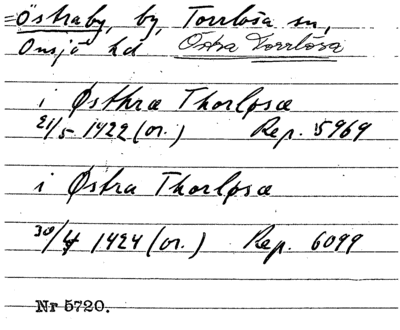 =Östraby, by, Torrlösa sn,
Onsjö hd Östra Torrlösa
i Østhræ Thorløsæ
21/5 1422 (or.) Rep. 5969
i Østra Thorløsæ
30/4 1424 (or.) Rep. 6099
Nr 5720.